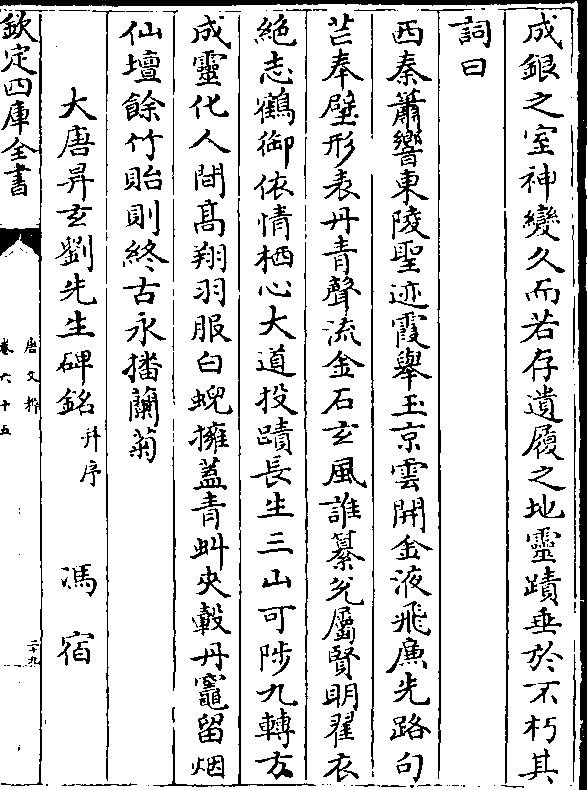 成銀之室神變久而若存遺履之地靈蹟垂於不朽其
詞曰
西秦簫響東陵聖迹霞舉玉京雲開金液飛廉先路句
芒奉璧形表丹青聲流金石玄風誰纂允屬賢明翟衣
絶志鶴御依情栖心大道投蹟長生三山可陟九轉方
成靈化人間髙翔羽服白蜺擁蓋青虯夾轂丹竈留烟
仙壇餘竹貽則終古永播蘭菊
大唐昇玄劉先生碑銘并序 馮宿
欽定四庫全書
唐文粹
卷六十五
二十九